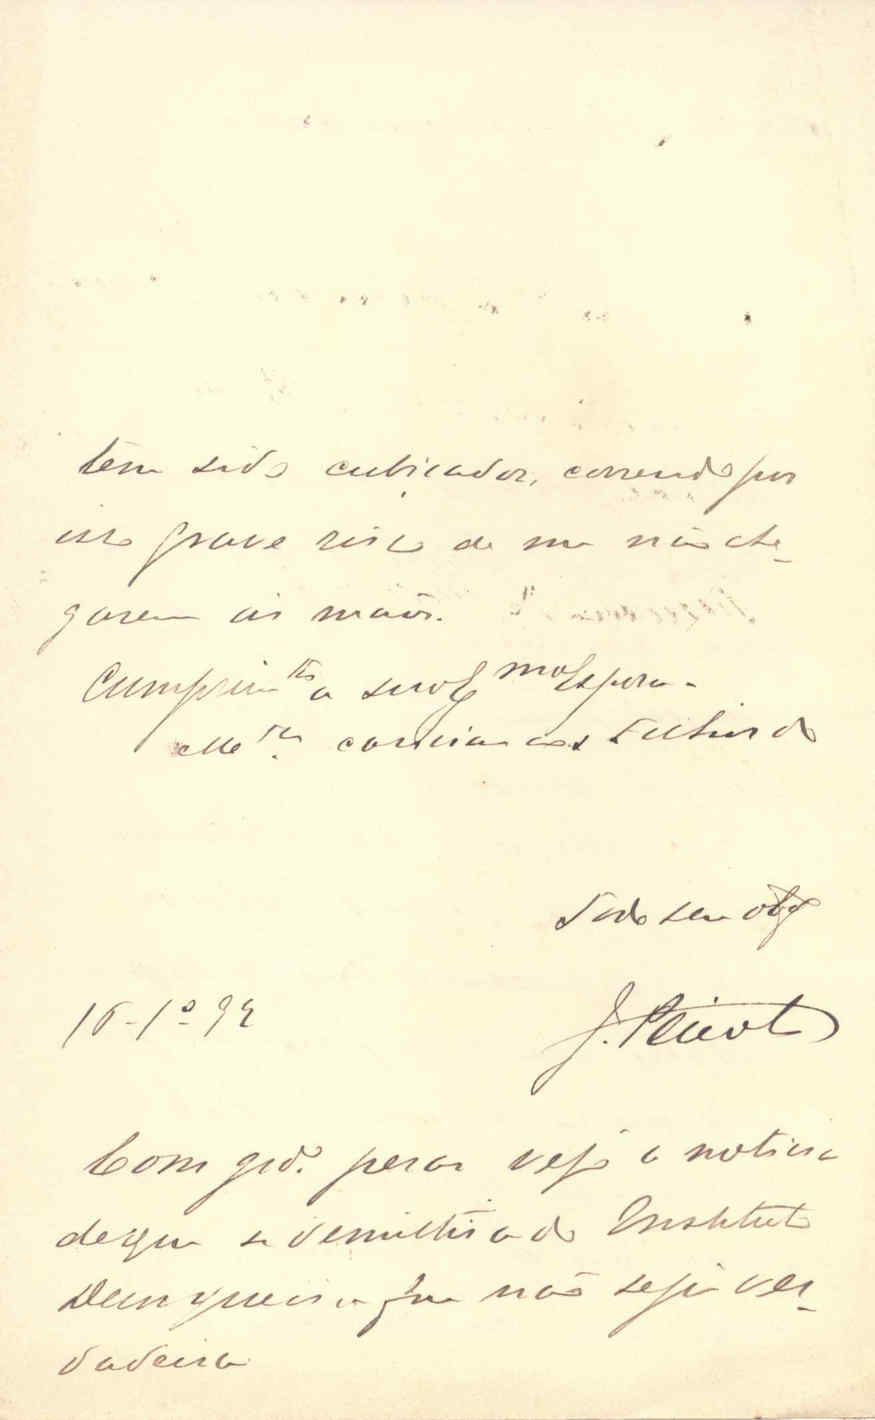 têm sido cubiçados, correndo por
isso grave risco de me não che-
garem ás mãos.
Cumprimtos a sua Exma Espoza
caricias aos Filhinhos do
Todo seu obgo
16-1º-92
Com gde. pezar vejo a noticia
de que se demittira do Instituto
Deus queira que não seja ver-
dadeira